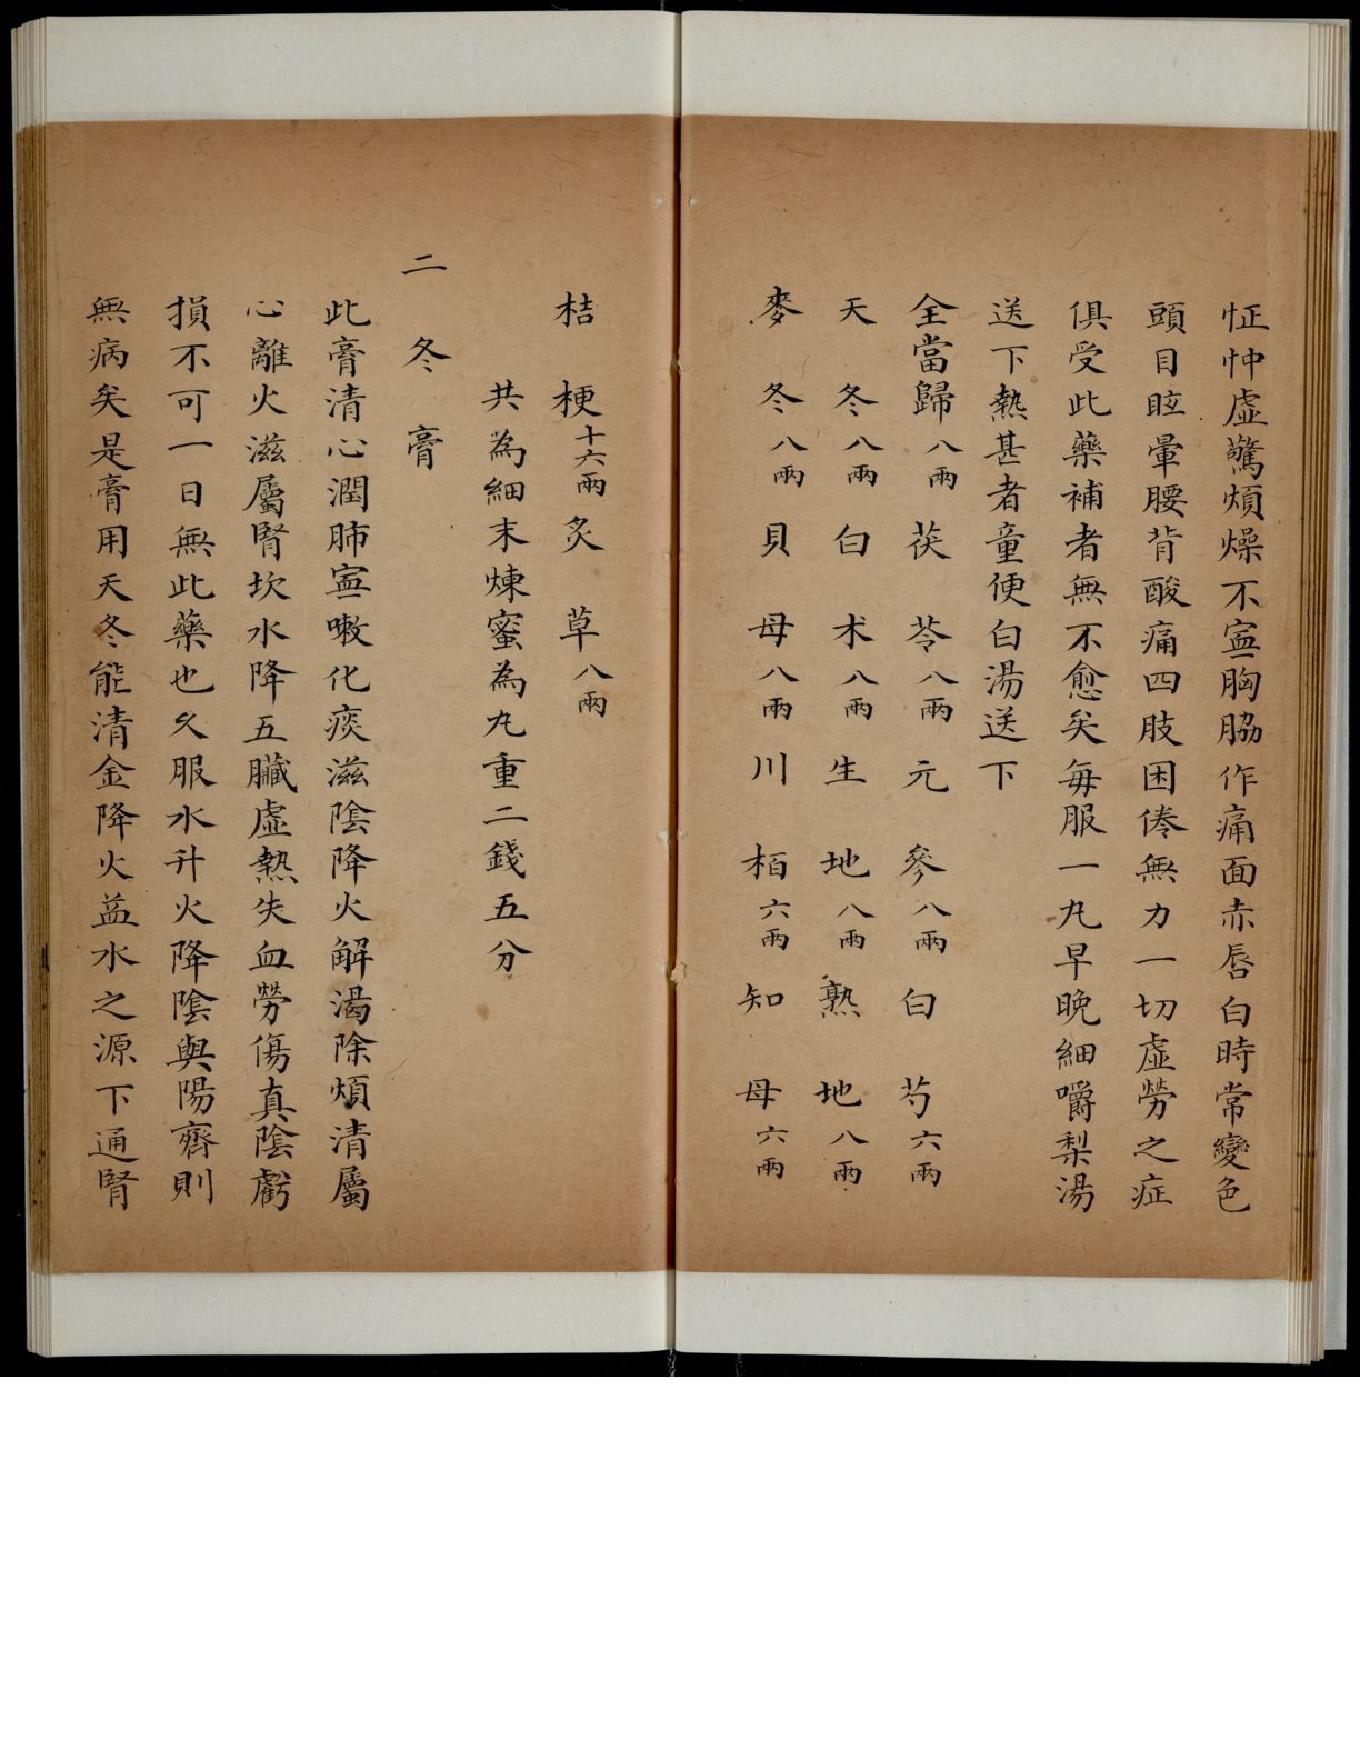 怔忡虛驚煩燥不寍胸脇作痛面赤唇白時常變色
頭目眩暈腰背酸痛四肢困倦無力一切虛勞之症
俱受此藥補者無不愈矣每服一九早晚細嚼梨湯
送下熱甚者童便白湯送下
全當歸八兩茯苓八兩元參八兩白芍六兩
天冬八兩白朮八兩生地八兩熟地八兩
麥冬八兩貝母八兩川栢六兩知母六兩
桔梗十六兩炙草八兩
共為細末煉蜜為九重二錢五分
二冬膏
此膏清心潤肺寍嗽化痰滋陰降火解渴除煩清屬
心離火滋屬腎坎水降五臟虛熱失血勞傷真陰虧
損不可一日無此藥也久服水升火降陰與陽齊則
無病矣是膏用天冬能清金降火益水之源下通腎